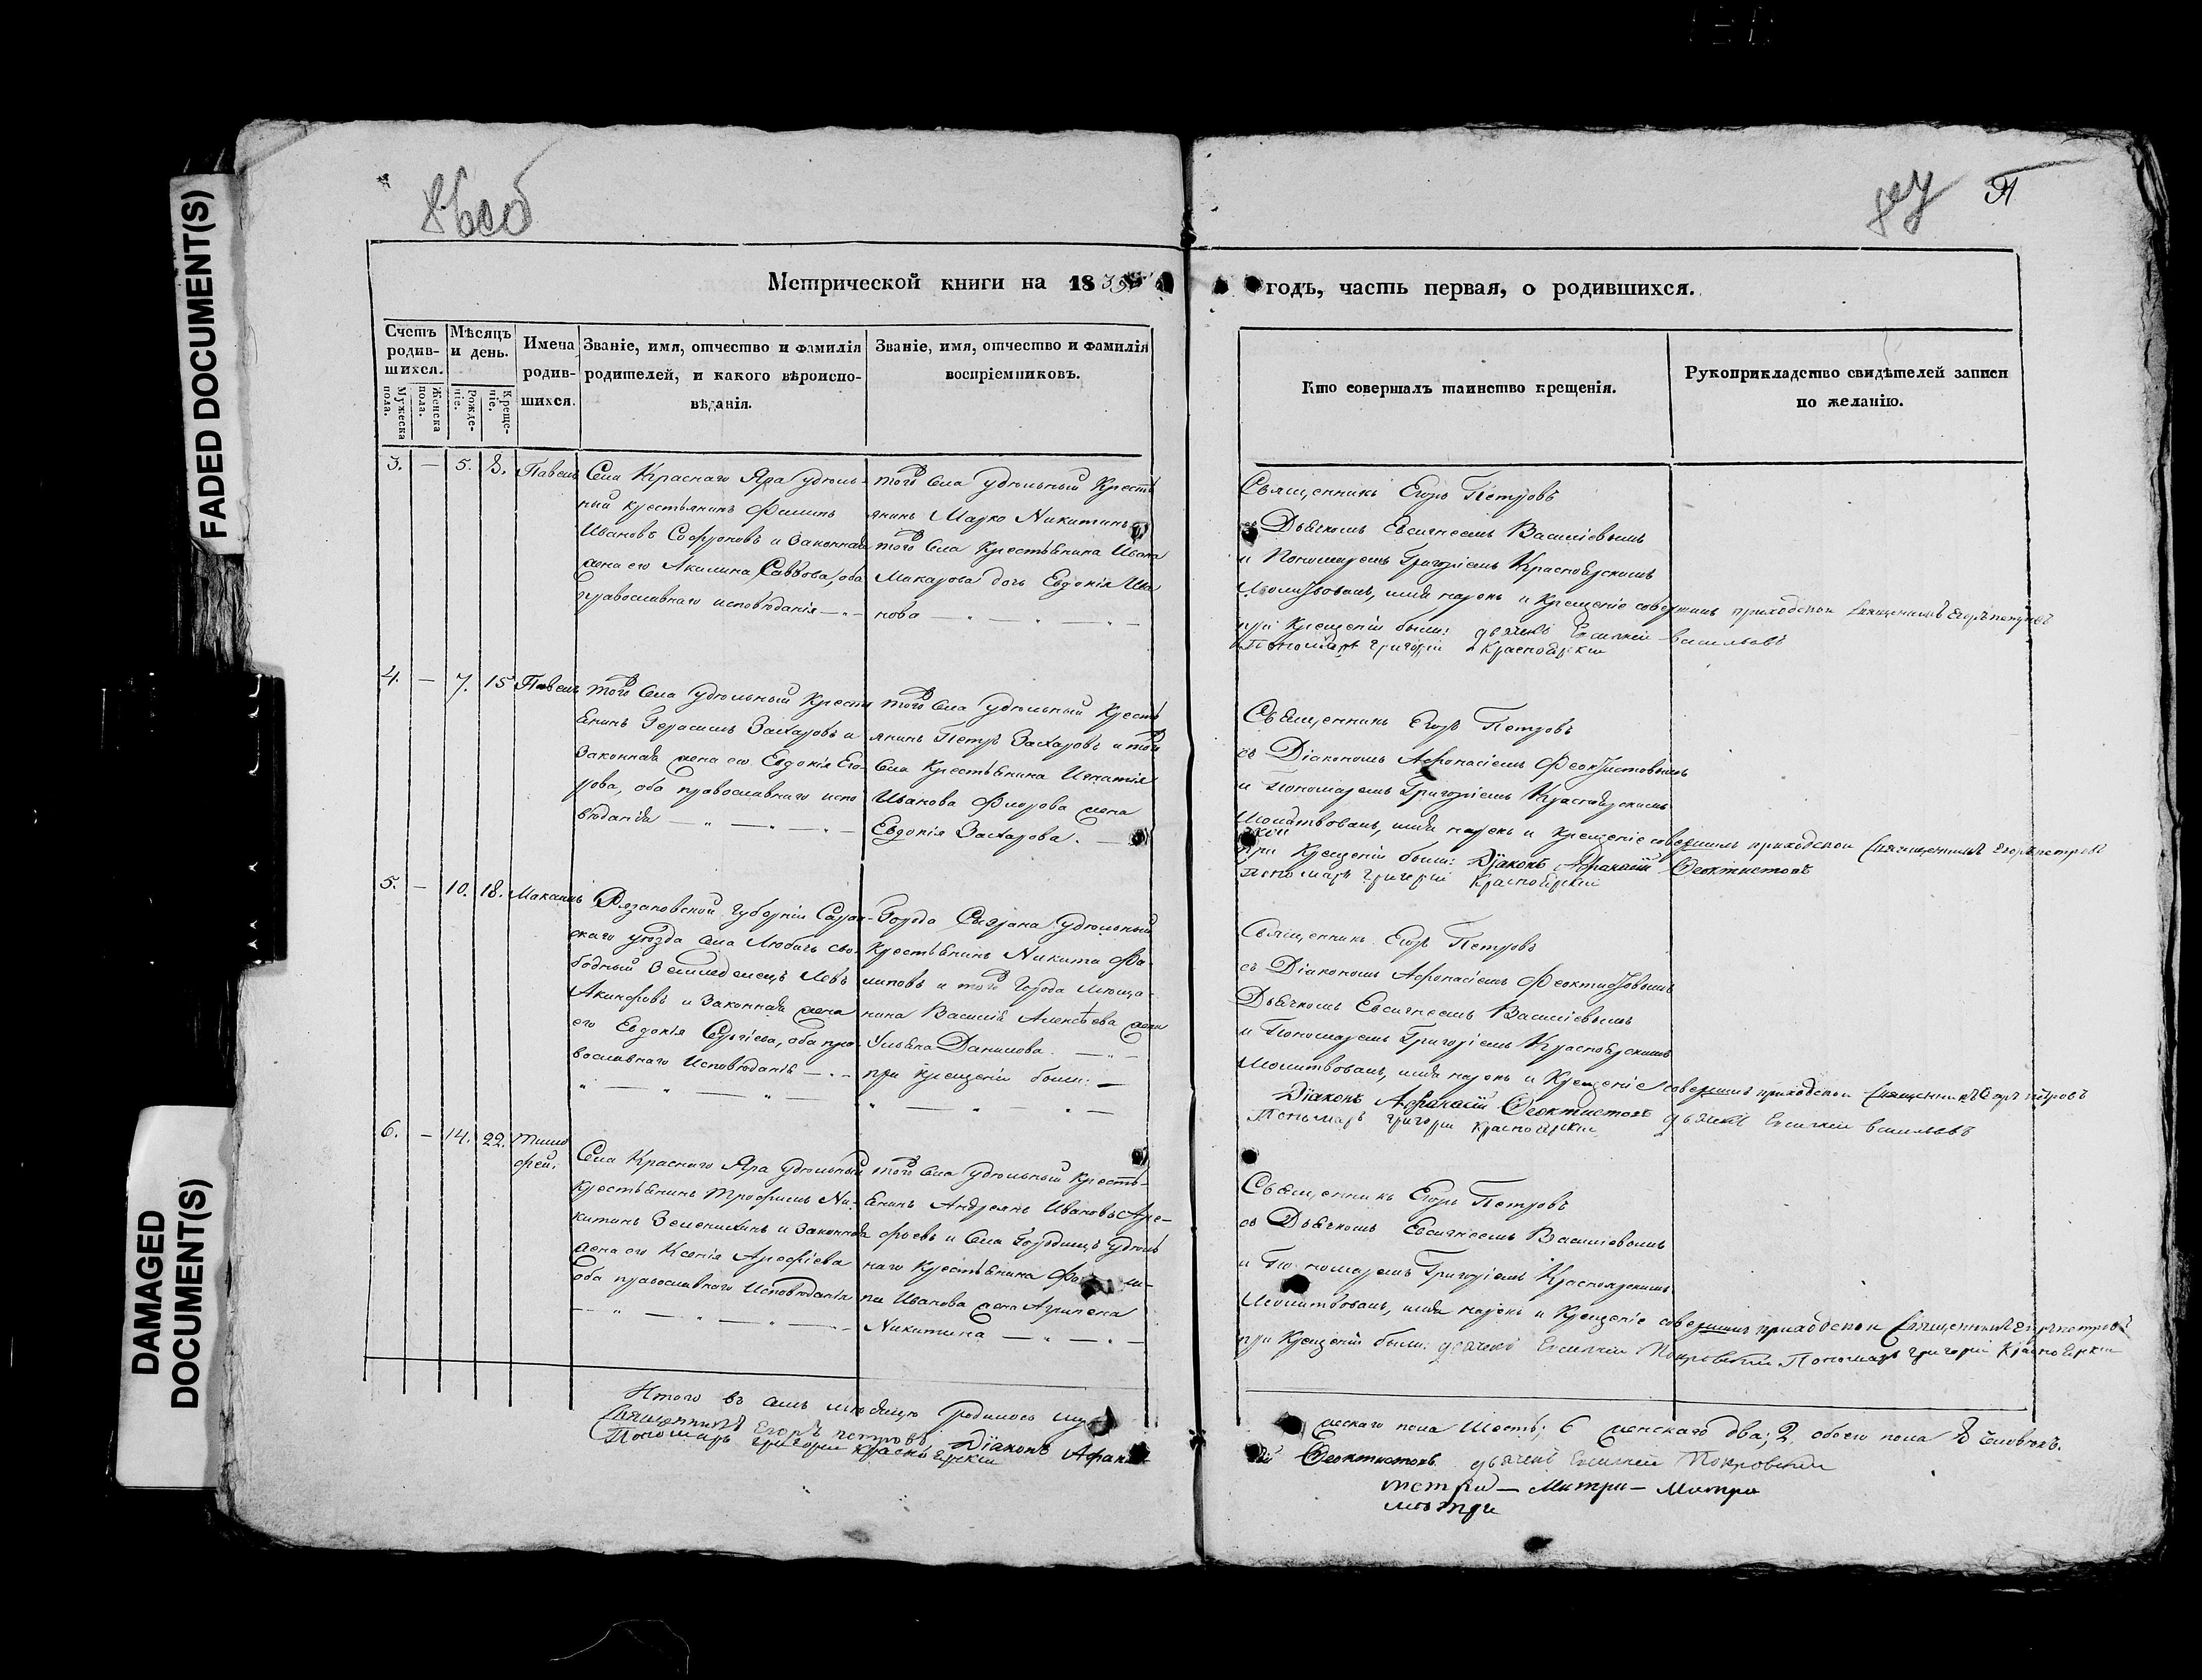 FADED DOCUMENT(S)
DAMAGED
DOCUMENT(S)
86об
87
Метрической книги на 1835
годъ, часть первая, о родившихся.
Счетъ родив-шихся.
Мужеска пола.
Женска пола.
Мѣсяцъ и день.
Рожде-ніе.
Креще-ніе.
Имена родив-шихся.
Званіе, имя, отчество и фамилія
родителей, и какого вѣроиспо-
вѣданія.
Званіе, имя, отчество и фамилія
воспріемниковъ.
Кто совершалъ таинство крещенія.
Рукоприкладство свидѣтелей записи
по желанію.
3. — 5. 8. Павелъ
Села Краснаго Яра удѣль-
ный крестьянинъ Филипъ
Ивановъ Софроновъ и законная
жена его Акилина Саввова, оба
православнаго исповѣданія
того Села удѣльный Кресть
янинъ Марко Никитинъ и
того Села Крестьянина Ивана
Макарова дочь Евдокія Ива
нова
Священникъ Егоръ Петровъ
съ Дьячкомъ Евсигнеемъ Василіевымъ
и Пономаремъ Григоріемъ Красноярскимъ
Молитвовалъ, имя нарекъ и Крещеніе совершилъ приходской священникъ Егоръ петровъ
при Крещеніи были: дьячекъ Евсигней васильевъ
Пономарь Григорій Красноярскій
4. — 7. 15 Павелъ
того Села удѣльный Кресть
янинъ Герасимъ Захаровъ и
законная жена его Евдокія Его-
рова, оба православнаго испо
вѣданія
того Села удѣльный Кресть
янинъ Петръ Захаровъ и той
Села Крестьянина Игнатія
Иванова Флорова жена
Евдокія Захарова.
Священникъ Егоръ Петровъ
съ Діакономъ Афонасіемъ Феоктистовымъ
и Пономаремъ Григоріемъ Красноярскимъ
Молитвовалъ, имя нарекъ и Крещеніе совершилъ приходской священникъ Егоръ петровъ
при Крещеніи были: Діаконъ Афанасій Феоктистовъ
Пономарь Григорій Красноярскій
5. — 10. 18. Максимъ
Рязановской Губерніи Сарай-
скаго уѣзда села Любичь сво-
бодный Земледелецъ Левъ
Акинфовъ и Законная жена
его Евдокія Сергіева, оба пра-
вославнаго Исповѣданія
Города Сызрана удѣльный
Крестьянинъ Никита Фи-
липовъ и того Города Мѣща-
нина Василія Алексѣева жена
Ульяна Данилова.
при крещеніи были:
Священникъ Егоръ Петровъ
съ Діакономъ Афонасіемъ Феоктистовымъ
Дьячкомъ Евсигнеемъ Василіевымъ
и Пономаремъ Григоріемъ Красноярскимъ
Молитвовалъ, имя нарекъ и Крещеніе совершилъ приходской священникъ Егоръ петровъ
Діаконъ Афанасій Феоктистовъ дьячекъ Евсигней васильевъ
Пономарь Григорій Красноярскій
6. — 14. 22. Тимо
фей.
Села Краснаго Яра удѣльный
крестьянинъ Трофимъ Ни-
китинъ Земенихинъ и законная
жена его Ксенія Арефіева
оба православнаго Исповѣданія
того Села удѣльный кресть-
янинъ Андреянъ Ивановъ Аре-
фьевъ и Села Городищъ удѣль
наго Крестьянина
Иванова жена Агрипена
Никитина
Священникъ Егоръ Петровъ
съ Дьячкомъ Евсигнеемъ Василіевымъ
и Пономаремъ Григоріемъ Красноярскимъ
Молитвовалъ, имя нарекъ и Крещеніе совершилъ приходской священникъ Егоръ петровъ
при Крещеніи были: дьячекъ Евсигней Покровскій Пономарь Григорій Красноярскій
Итого въ семъ мѣсяцѣ родилось муж
ескаго пола Шесть; 6 женскаго два; 2. обоего пола 8 человѣкъ.
Священникъ Егоръ петровъ Діаконъ Афана
сій Феоктистовъ дьячекъ Евсигней Покровскій
Пономарь Григорій Красноярскій
метри — Митри — Митри